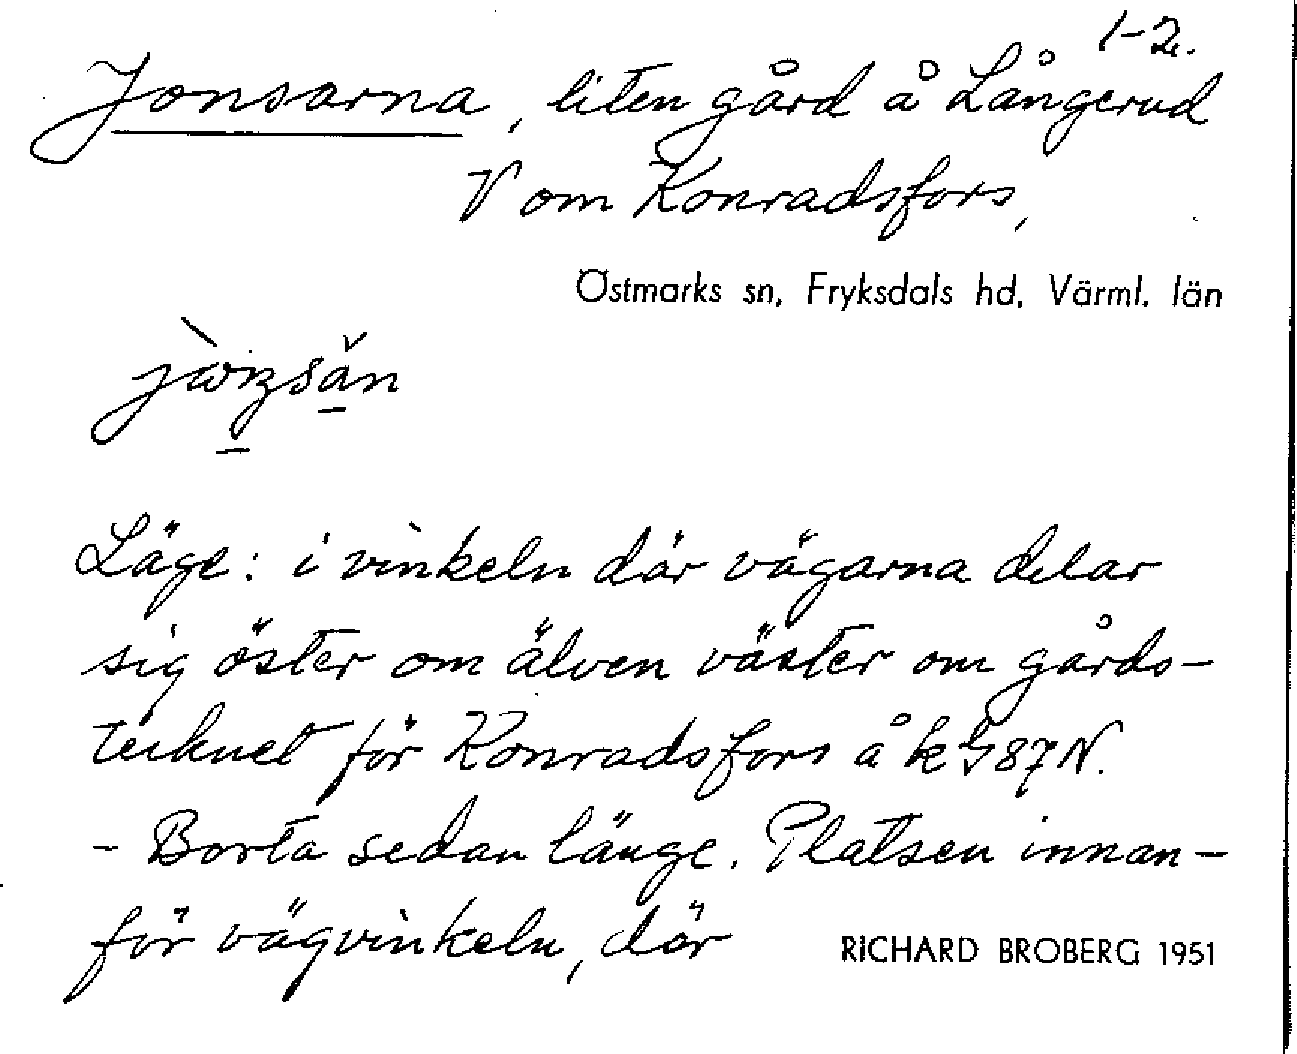 1-2.
Jonsarna, liten gård å Långerud
V om Konradsfors,
Östmarks sn, Fryksdals hd, Värml. län
Läge: i vinkeln där vägarna delar
sig öster om älven väster om gårds-
tecknet för Konradsfors å k G87N.
- Borta sedan länge. Platsen innan-
för vägvinkeln, där
RICHARD BROBERG 1951